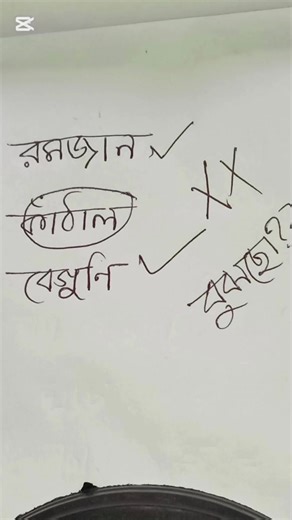 রমজান ✓
কাঁঠাল
XX
বেগুনি ✓
বুঝছো??